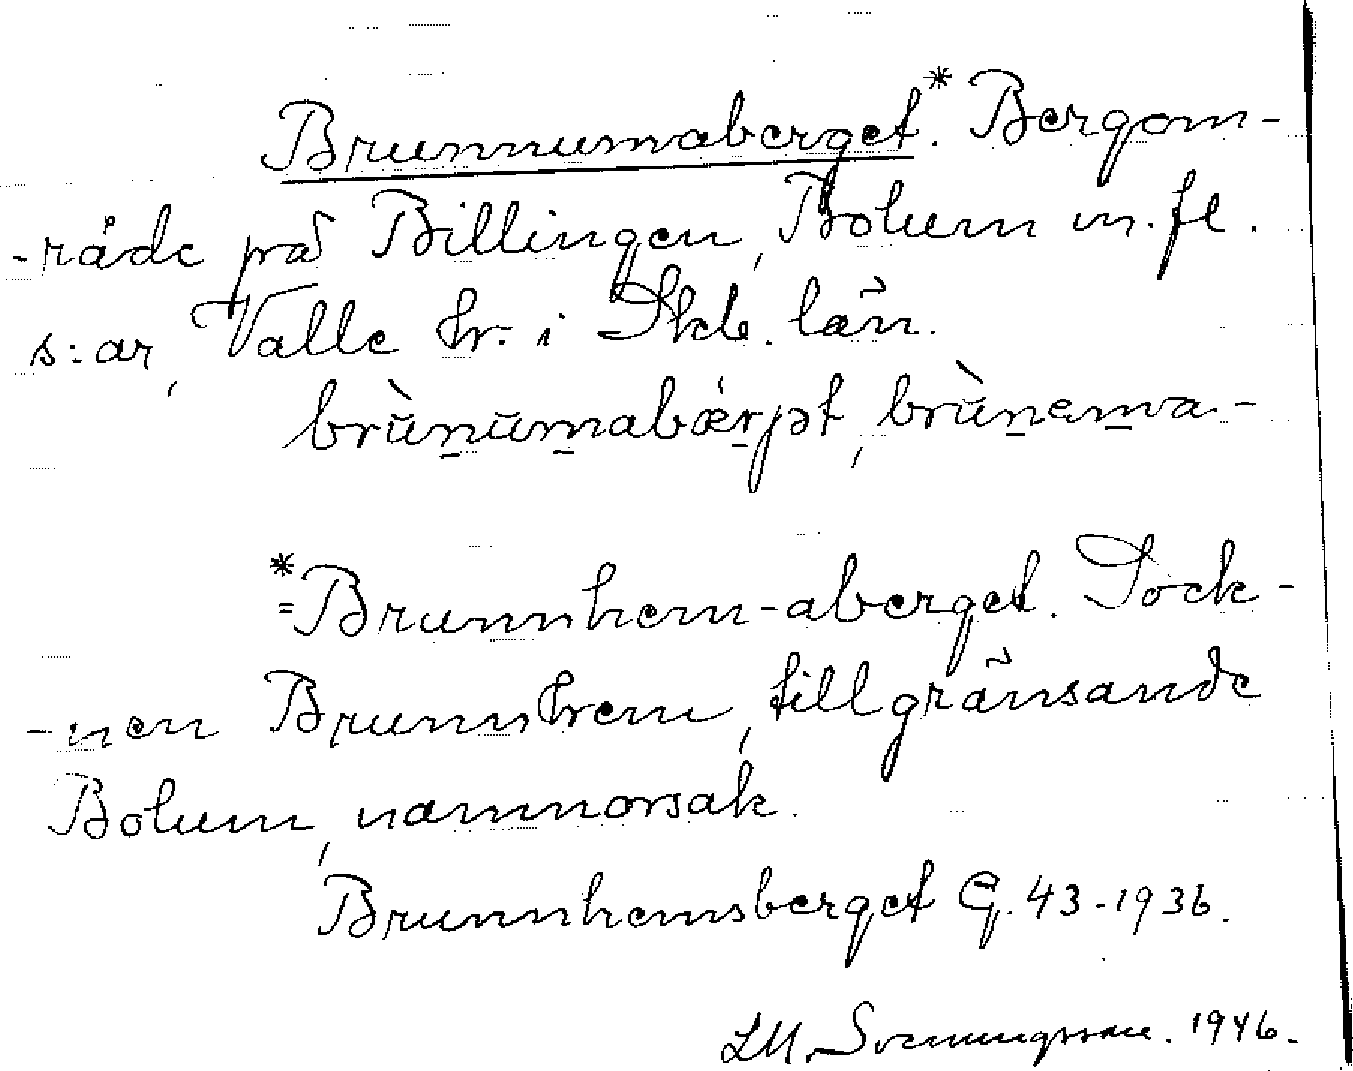 Brunnumaberget.* Bergom-
-råde på Billingen, Bolum m.fl.
s:ar, Valle hr. i Skb. län.
brùnumabǽrjət, brùnema-
*
=Brunnhem-aberget. Sock-
-nen Brunnhem, tillgränsande
Bolum, namnorsak.
Brunnhemsberget G. 43-1936.
LM. Svenungsson. 1946.